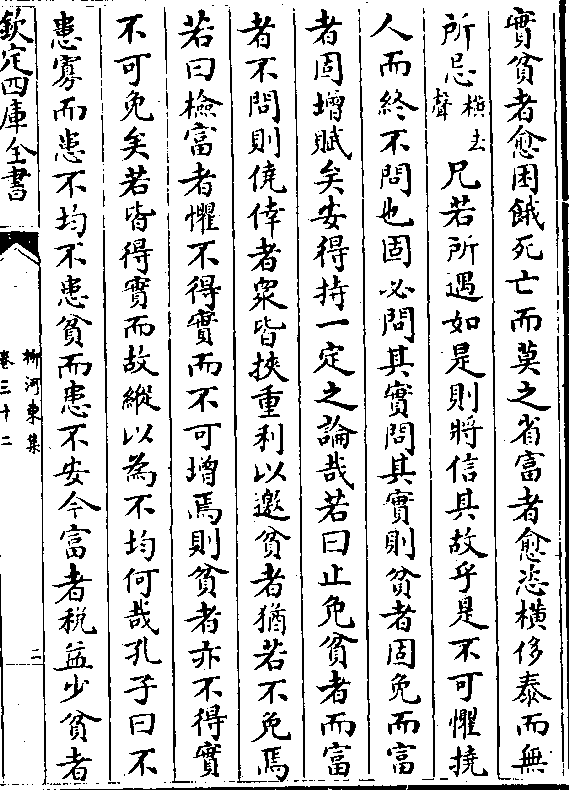 實貧者愈困餓死亡而莫之省富者愈恣橫侈泰而無
所忌橫去聲兄若所遇如是則將信其故乎是不可懼撓
人而終不問也固必問其實問其實則貧者固免而富
者固增賦矣安得持一定之論哉若曰止免貧者而富
者不問則僥倖者衆皆挾重利以邀貧者猶若不免焉
若曰檢富者懼不得實而不可增焉則貧者亦不得實
不可免矣若皆得實而故縱以為不均何哉孔子曰不
患寡而患不均不患貧而患不安今富者稅益少貧者
欽定四庫全書
柳河東集
卷三十二
二